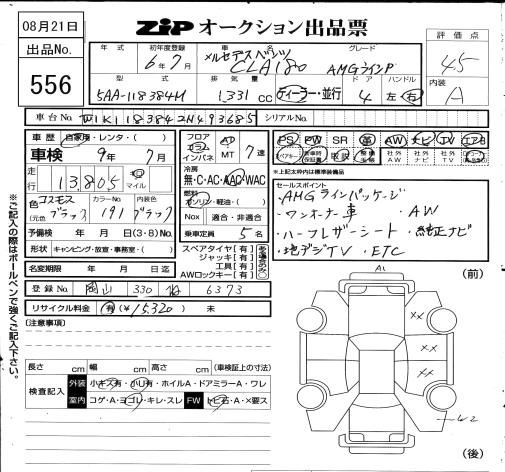 08月21日
ZIP オークション出品票
出品No.
556
年式
初年度登録
車名
グレード
評価点
6年7月
メルセデスベンツ
CLA180
AMGラインP
4.5
型式
排気量
ドア
ハンドル
内装
5AA-118384M
1331cc
ディーラー・並行
4
左・右
A
車台No.
W1K1183842N493685
シリアルNo.
車歴
自家用・レンタ・( )
フロア
コラム
インパネ
AT
MT
7速
PS PW SR 革 AW ナビ TV エアB
車検
9年7月
冷房
無・C・AC・AAC・WAC
スペアキー
取説
社外AW
社外ナビ
社外TV
走行
13,805
km
マイル
燃料
ガソリン・軽油・( )
※上記太枠内は標準装備品
色
コスモスブラック
(元色)
カラーNo.
191
内装色
ブラック
Nox
適合・非適合
セールスポイント
・AMGラインパッケージ
・ワンオーナー車
・AW
・ハーフレザーシート
・純正ナビ
・地デジTV
・ETC
予備検
年 月 日(3・8)No.
乗車定員
5名
形状
キャンピング・放宣・事務室・( )
スペアタイヤ【有】
ジャッキ【有】
工具【有】
AWロックキー【有】
名変期限
年 月 日迄
登録No.
岡山 330 6373
リサイクル料金
有(¥15,320)
未
(注意事項)
長さ cm 幅 cm 高さ cm (車検証上の寸法)
検査記入
外装
小キズ有・小凹有・ホイルA・ドアミラーA・ワレ
室内
コゲ・A・ヨゴレ・キレ・スレ
FW
トビ石・A・X要ス
※ご記入の際はボールペンで強くご記入下さい。
(前)
A1
XX
XX
XX
W2
(後)